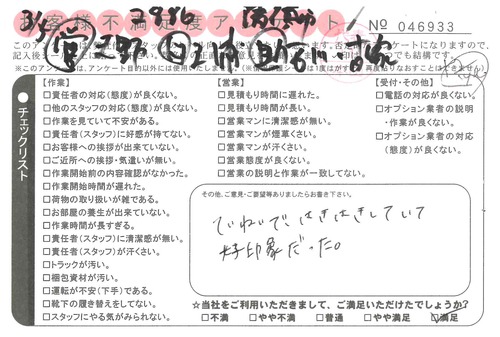 お客様不満足度アンケート
No 046933
3986
チェックリスト
【作業】
□責任者の対応(態度)が良くない。
□他のスタッフの対応(態度)が良くない。
□作業を見ていて不安がある。
□責任者(スタッフ)に好感が持てない。
□お客様への挨拶が出来ていない。
□ご近所への挨拶・気遣いが無い。
□作業開始前の内容確認がなかった。
□作業開始時間が遅れた。
□荷物の取り扱いが雑である。
□お部屋の養生が出来ていない。
□作業時間が長すぎる。
□責任者(スタッフ)に清潔感が無い。
□責任者(スタッフ)が汗くさい。
□トラックが汚い。
□梱包資材が汚い。
□運転が不安(下手)である。
□靴下の履き替えをしてない。
□スタッフにやる気がみられない。
【営業】
□見積もり時間に遅れた。
□見積もり時間が長い。
□営業マンに清潔感が無い。
□営業マンが煙草くさい。
□営業マンが汗くさい。
□営業態度が良くない。
□営業の説明と作業が一致してない。
【受付・その他】
□電話の対応が良くない。
□オプション業者の説明
・作業が良くない。
□オプション業者の対応
(態度)が良くない。
その他、ご意見・ご要望等ありましたらお書き下さい。
ていねいで、はきはきしていて
好印象だった。
☆当社をご利用いただきまして、ご満足いただけたでしょうか?
□不満 □やや不満 □普通 □やや満足 ☑満足